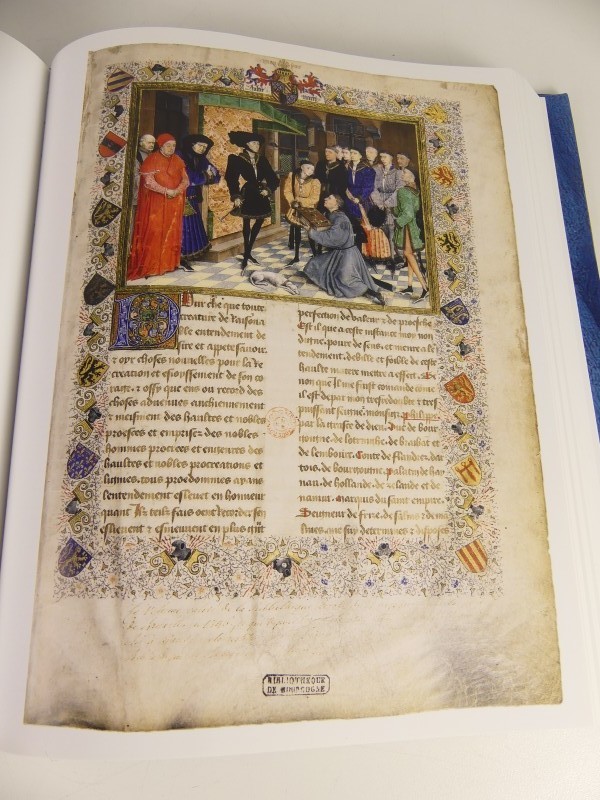 Pur che que toute
creature de raisona
ble entendement de
sire et appete savoir
⁊ oyr choses nouvelles pour la re
creation et esioissement de son co
rage. ⁊ ossy que ens ou record des
choses advenues anchiennement
⁊ meisment des haultes et nobles
proesces et emprises des nobles
hommes procrees et engenres des
haultes et nobles procreations et
lignies. tous proedommes ayans
lentendement esleuet en honneur
quant ilz telz fais oent recorder sen
esslieuent ⁊ esmeuvent en plus grant
perfection de valeur ⁊ de proesche.
Est il que a ceste instance moy non
digne. poure de sens. et menre a len
tendement. debille et foible de ceste
haulte matere mettre a effect. Se
non que il me fuist comende come
il est de par mon tresredoubte ⁊ tres
puissant seignr. monsigr. phelippe
par la grasce de dieu. Duc de bour
gongne. de lotringhe. de brabant et
de lembourc. Conte de flandres. dar
tois. de bourgongne. palatin de hay
nau. de hollande. de zelande et de
namur. Marquis du saint empire.
Seigneur de frise. de salins ⁊ de ma
lines. me suy determines ⁊ disposes
BIBLIOTHEQUE
DE BOURGOGNE